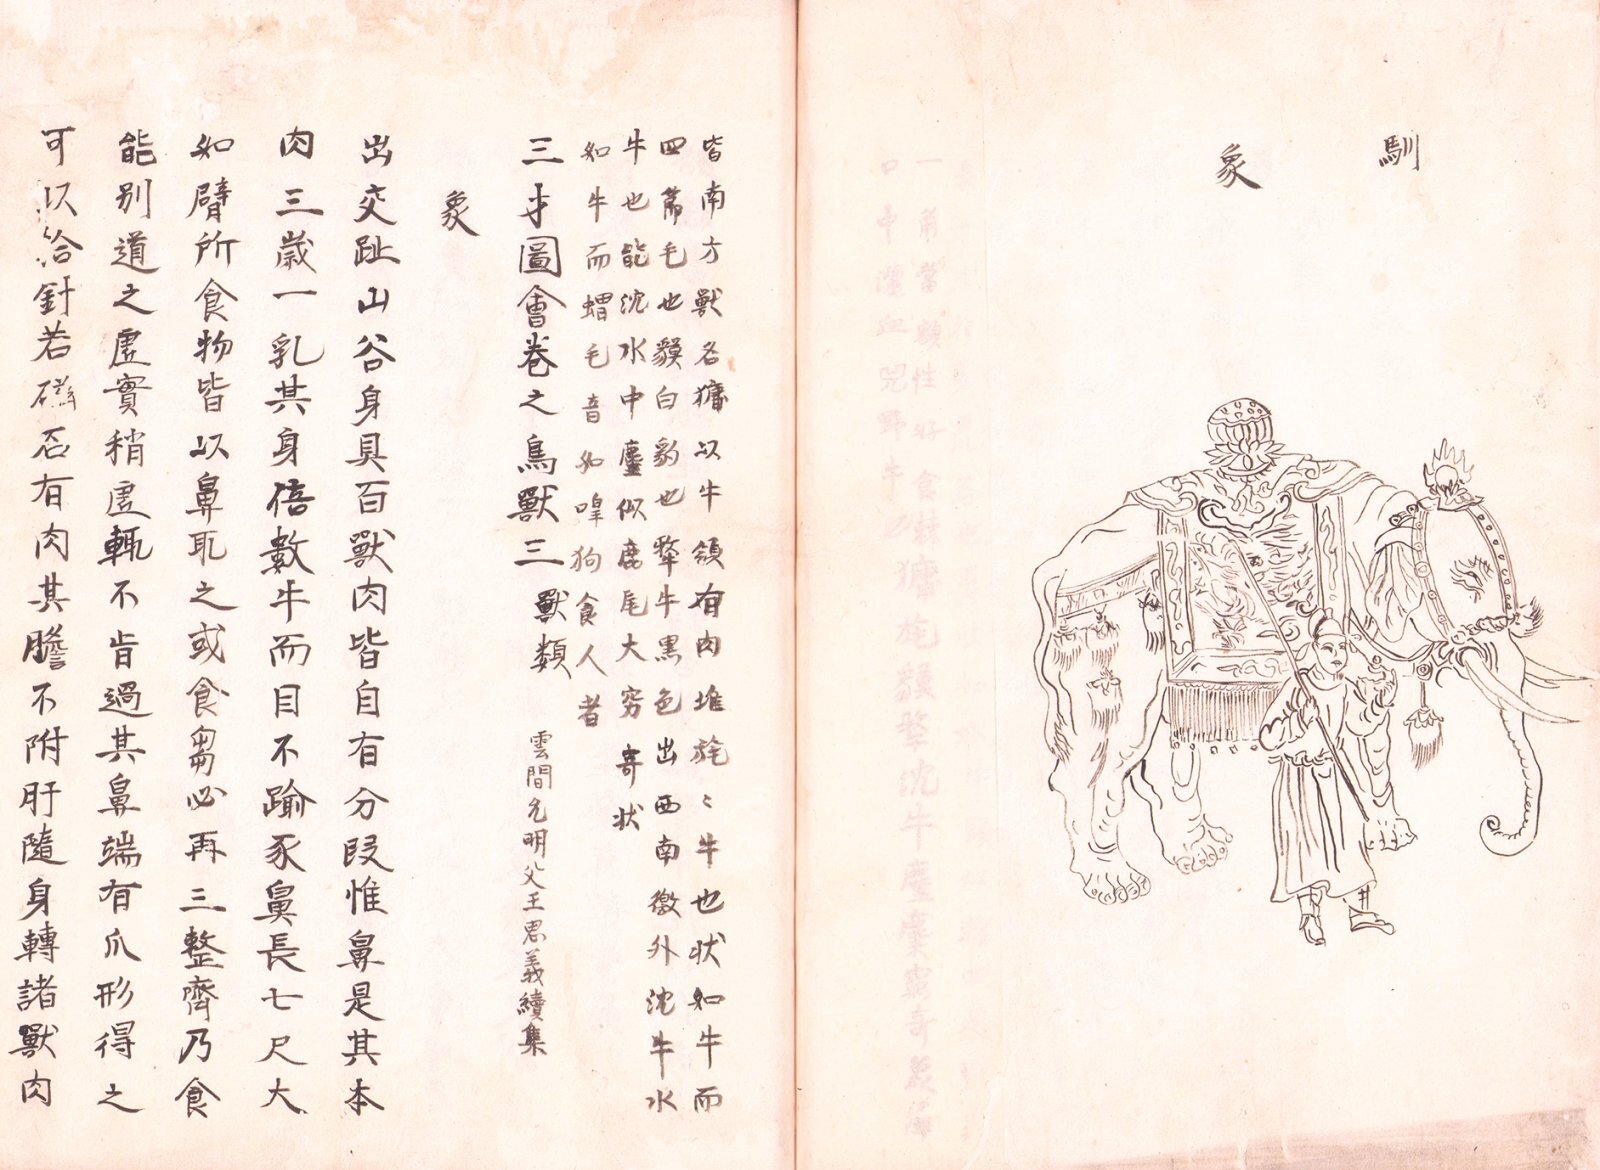 馴
象
皆南方獸名犣以牛領有肉堆旄〻牛也状如牛而
四節毛也貘白豹也犛牛黒色出西南徼外沈牛水
牛也能沈水中麈似鹿尾大窮竒状
如牛而蝟毛音如嘷狗食人者
三才圖會巻之鳥獸三 獸類 雲間允明父王思義續集
象
出交趾山谷身具百獸肉皆自有分叚惟鼻是其本
肉三歳一乳其身倍數牛而目不踰豕鼻長七尺大
如臂所食物皆以鼻取之或食芻必再三整齊乃食
能别道之虚實稍虚輒不肯過其鼻端有爪形得之
可以拾針若磁石有肉其膽不附肝隨身轉諸獸肉